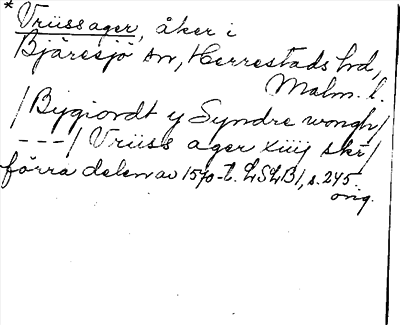 * Vriissager, åker i
Bjäresjö sn, Herrestads hd,
Malm. l.
/ Bygiordt y Syndre wongh/
---/ Vriiss ager xiiij skr/
förra delen av 1570-t. LSLB1, s. 245.
orig.